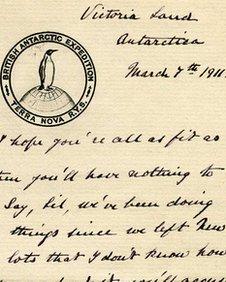 Victoria Land
Antarctica
March 7th 1911
BRITISH ANTARCTIC EXPEDITION
TERRA NOVA R.Y.S.
I hope you're all as fit as
you'll have nothing to
Say, Sil, we've been doing
things since we left New
lots that I don't know how